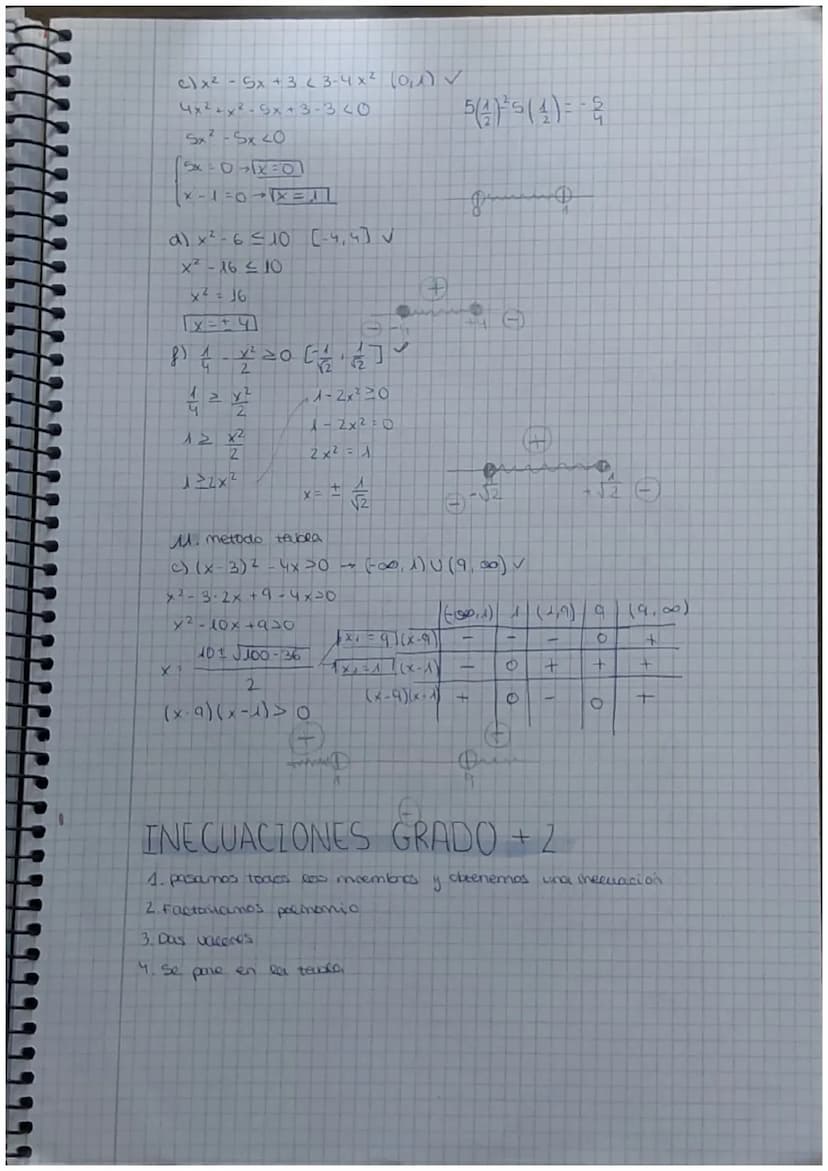 c) x² - 5x + 3 < 3 - 4x² (0,1) ✓
4x² + x² - 5x + 3 - 3 < 0
5(1/2)² 5(1/2) = -5/4
5x² - 5x < 0
5x = 0 → x = 0
x - 1 = 0 → x = 1
0 1
d) x² - 6 ≤ 10 [-4, 4] ✓
x² - 16 ≤ 10
x² = 16
+
x = ± 4
- -4 +4 -
f) 1/4 - x²/2 ≥ 0 [-1/√2, 1/√2] ✓
1/4 ≥ x²/2
1 - 2x² ≥ 0
1 ≥ x²/2
1 - 2x² = 0
2x² = 1
+
1 ≥ 2x²
x = ± 1/√2
- -√2 + 1/√2 -
11. metodo tabla
c) (x-3)² - 4x > 0 → (-∞, 1) ∪ (9, ∞) ✓
x² - 3·2x + 9 - 4x > 0
x² - 10x + 9 > 0
x = 10 ± √100-36 / 2
x₁ = 9
x₂ = 1
(-∞, 1) 1 (1,9) 9 (9, ∞)
(x-9) - - - 0 +
(x-1) - 0 + + +
(x-9)(x-1) + 0 - 0 +
(x-9)(x-1) > 0
+ +
1 9
-
INECUACIONES GRADO + 2
1. pasamos todos los miembros y obtenemos una inecuación
2. Factorizamos polinomio
3. Das valores
4. Se pone en la tabla